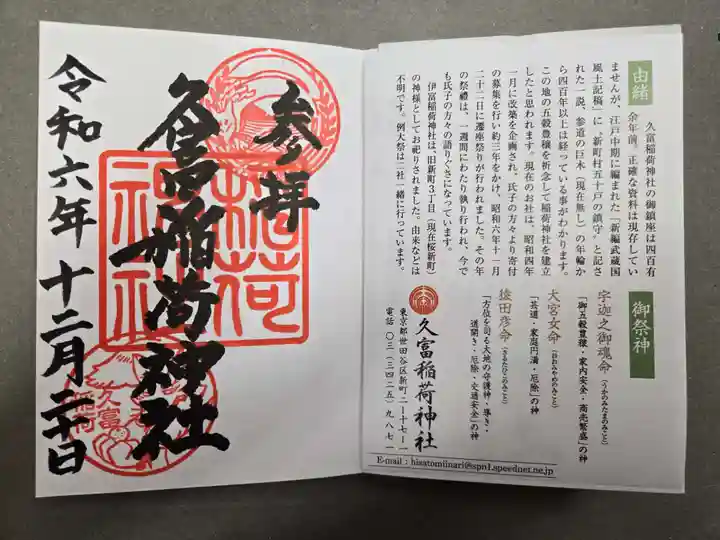 参拝
久富稲荷神社
令和六年十二月二十日
稲荷
神社
久富
稲荷
由緒
久富稲荷神社の御鎮座は四百有
余年前、正確な資料は現存してい
ませんが、江戸中期に編まれた「新編武蔵国
風土記稿」に、"新町村五十戸の鎮守"と記さ
れた一説、参道の巨木(現在無し)の年輪か
ら四百年以上は経っている事がわかります。
この地の五穀豊穣を祈念して稲荷神社を建立
したと思われます。現在のお社は、昭和四年
一月に改築を企画され、氏子の方々より寄付
の募集を行い約三年をかけ、昭和六年十一月
二十二日に遷座祭りが行われました。その年
の祭禮は、一週間にわたり執り行われ、今で
も氏子の方々の語りぐさになっています。
伊富稲荷神社は、旧新町3丁目(現在桜新町)
の神様としてお祀りされました。由来などは
不明です。例大祭は二社一緒に行っています。
御祭神
宇迦之御魂命(うかのみたまのみこと)
「御五穀豊穣・家内安全・商売繁盛」の神
大宮女命(おおみやめのみこと)
「芸道・家庭円満・厄除」の神
猿田彦命(さるたひこのみこと)
「方位を司る大地の守護神・導き・
道開き・厄除・交通安全」の神
久富稲荷神社
東京都世田谷区新町二ー十七ー一
電話 〇三(三四二五)九八七一
E-mail : hisatomiinari@spn1.speednet.ne.jp